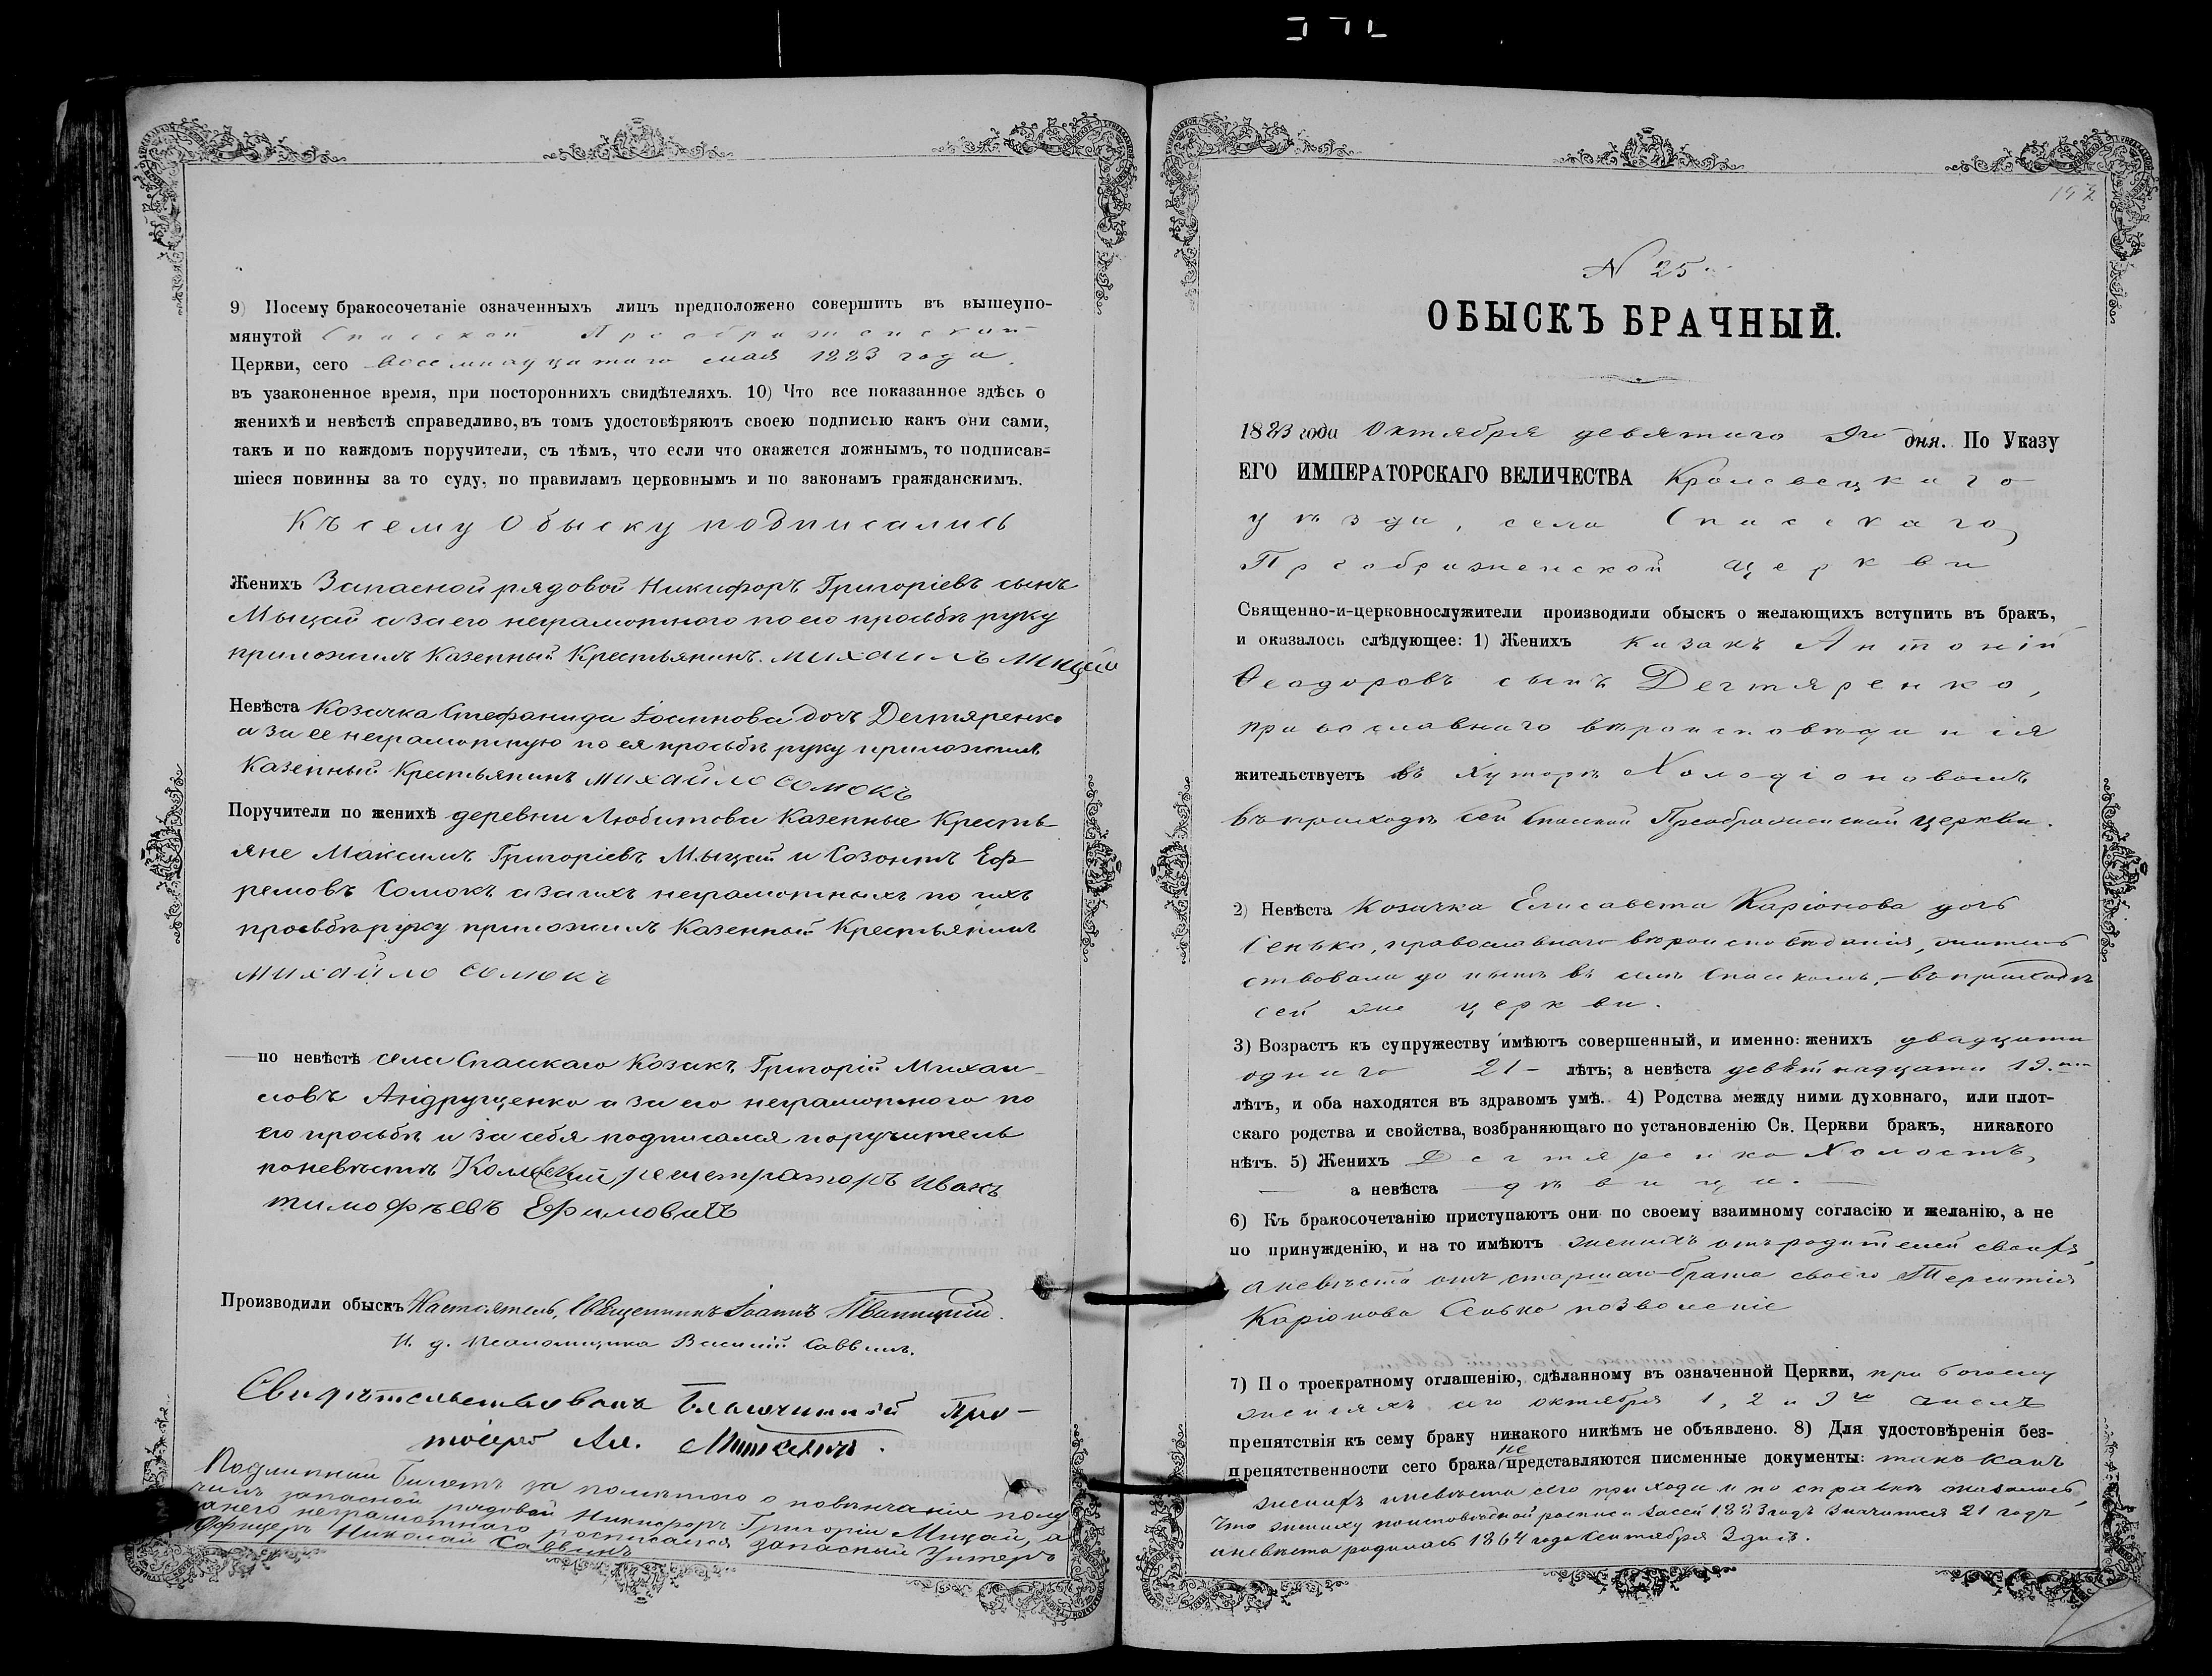 9) Посему бракосочетаніе означенныхъ лицъ предположено совершить въ вышеупо-
мянутой Спасской Преображенской
Церкви, сего восемнадцатаго мая 1883 года.
въ узаконенное время, при постороннихъ свидѣтеляхъ. 10) Что все показанное здѣсь о
женихѣ и невѣстѣ справедливо, въ томъ удостовѣряютъ своею подписью какъ они сами,
такъ и по каждомъ поручители, съ тѣмъ, что если что окажется ложнымъ, то подписав-
шіеся повинны за то суду, по правиламъ церковнымъ и по законамъ гражданскимъ.
Къ сему обыску подписались
Женихъ Запасной рядовой Никифоръ Григоріевъ сынъ
Мыцай а за его неграмотного по его просьбѣ руку
приложилъ Казенный Крестьянинъ Михаилъ Мицай
Невѣста Козачка Стефанида Іоаннова дочь Дегтяренко
а за ее неграмотную по ея просьбѣ руку приложилъ
Казенный Крестьянинъ Михайло Сомокъ
Поручители по женихѣ деревни Любитова Казенные Кресть-
яне Максимъ Григоріевъ Мыцай и Созонтъ Еф-
ремовъ Сомокъ а за ихъ неграмотныхъ по ихъ
просьбѣ руку приложилъ Казенный Крестьянинъ
Михайло Сомокъ
по невѣстѣ села Спаскаго Козакъ Григорій Михаи-
ловъ Андрущенко а за его неграмотного по
его просьбѣ и за себя подписался поручитель
по невѣстѣ Коллежскій регистраторъ Иванъ
Тимофѣевъ Ефимовичъ
Производили обыскъ Настоятель, Священникъ Іоаннъ
И. д. Псаломщика Василій Саввинъ.
Свидѣтельствовалъ Благочинный Про-
тоіерей Ал.
Подлинный билетъ за помѣтою о повѣнчаніи полу-
чилъ запасной рядовой Никифоръ Григорій Мицай, а
за него неграмотнаго росписался запасный Унтеръ
Офицеръ Николай Саввинъ
N 25.
ОБЫСКЪ БРАЧНЫЙ.
1883 года Октября девятаго 9го дня. По Указу
ЕГО ИМПЕРАТОРСКАГО ВЕЛИЧЕСТВА Кролевецкаго
уѣзда, села Спасскаго,
Преображенской церкви
Священно-и-церковнослужители производили обыскъ о желающихъ вступить въ бракъ,
и оказалось слѣдующее: 1) Женихъ казакъ Антоній
Ѳеодоровъ сынъ Дегтяренко,
православнаго вѣроисповѣданія
жительствуетъ въ Хуторѣ
въ приходѣ сей Спаской Преображенской церкви.
2) Невѣста Козачка Елисавета Каріонова дочь
Сенько, православнаго вѣроисповѣданія, житель-
ствовала до нынѣ въ селѣ Спаскомъ, въ приходѣ
сей же церкви.
3) Возрастъ къ супружеству имѣютъ совершенный, и именно: женихъ двадцати
одного 21 – лѣтъ; а невѣста девятнадцати 19.
лѣтъ, и оба находятся въ здравомъ умѣ. 4) Родства между ними духовнаго, или плот-
скаго родства и свойства, возбраняющаго по установленію Св. Церкви бракъ, никакого
нѣтъ. 5) Женихъ Дегтяренко Холостъ,
а невѣста дѣвица.
6) Къ бракосочетанію приступаютъ они по своему взаимному согласію и желанію, а не
по принужденію, и на то имѣютъ женихъ отъ родителей своихъ,
а невѣста отъ старшаго брата своего Терентія
Каріонова Сенько позволеніе
7) По троекратному оглашенію, сдѣланному въ означенной Церкви,
сего октября 1, 2 и
препятствія къ сему браку никакого никѣмъ не объявлено. 8) Для удостовѣренія без-
препятственности сего брака не представляются писменные документы: такъ какъ
женихъ и невѣста сего прихода и по справкѣ оказалось,
что жениху по исповѣдной росписи за сей 1883 годъ значится 21 годъ
а невѣста родилась 1864 года Сентября 3 дня.